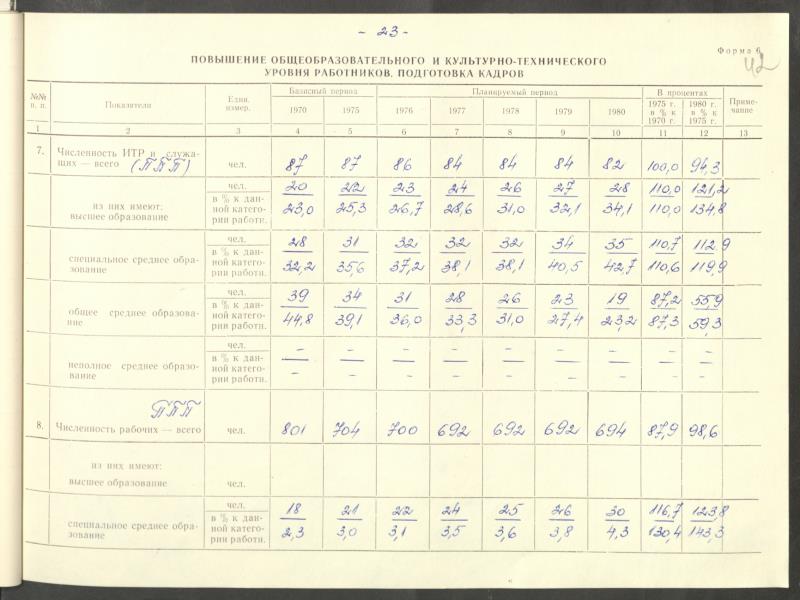 - 23 -
Форма 6
42
ПОВЫШЕНИЕ ОБЩЕОБРАЗОВАТЕЛЬНОГО И КУЛЬТУРНО-ТЕХНИЧЕСКОГО
УРОВНЯ РАБОТНИКОВ. ПОДГОТОВКА КАДРОВ
№№ п. п. Показатели Един. измер. Базисный период Планируемый период В процентах Примечание
1970 1975 1976 1977 1978 1979 1980 1975 г. в % к 1970 г. 1980 г. в % к 1975 г.
1 2 3 4 5 6 7 8 9 10 11 12 13
7. Численность ИТР и служа-
щих — всего (ППП) чел. 87 87 86 84 84 84 82 100,0 94,3
чел. 20 22 23 24 26 27 28 110,0 121,2
из них имеют:
высшее образование
в % к дан-
ной катего-
рии работн. 23,0 25,3 26,7 28,6 31,0 32,1 34,1 110,0 134,8
чел. 28 31 32 32 32 34 35 110,7 112,9
специальное среднее обра-
зование
в % к дан-
ной катего-
рии работн. 32,2 35,6 37,2 38,1 38,1 40,5 42,7 110,6 119,9
чел. 39 34 31 28 26 23 19 87,2 55,9
общее среднее образова-
ние
в % к дан-
ной катего-
рии работн. 44,8 39,1 36,0 33,3 31,0 27,4 23,2 87,3 59,3
чел. — — — — — — — — —
неполное среднее образо-
вание
в % к дан-
ной катего-
рии работн. — — — — — — — — —
ППП
8. Численность рабочих — всего чел. 801 704 700 692 692 692 694 87,9 98,6
из них имеют:
высшее образование чел.
чел. 18 21 22 24 25 26 30 116,7 123,8
специальное среднее обра-
зование
в % к дан-
ной катего-
рии работн. 2,3 3,0 3,1 3,5 3,6 3,8 4,3 130,4 143,3